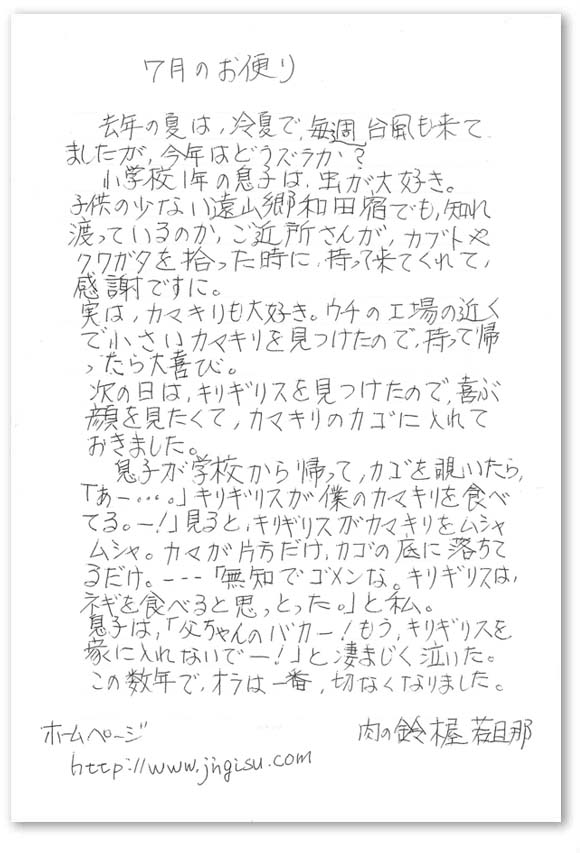 7月のお便り
去年の夏は、冷夏で、毎週台風も来て
ましたが、今年はどうズラか?
小学校1年の息子は、虫が大好き。
子供の少ない遠山郷和田宿でも、知れ
渡っているのか、ご近所さんが、カブトや
クワガタを拾った時に、持って来てくれて、
感謝ですに。
実は、カマキリも大好き。ウチの工場の近く
で小さいカマキリを見つけたので、持って帰
ったら大喜び。
次の日は、キリギリスを見つけたので、喜ぶ
顔を見たくて、カマキリのカゴに入れて
おきました。
息子が学校から帰って、カゴを覗いたら、
「あー・・・。」キリギリスが僕のカマキリを食べ
てる。ー!」見ると、キリギリスがカマキリをムシャ
ムシャ。カマが片方だけ、カゴの底に落ちて
るだけ。---「無知でゴメンな。キリギリスは、
ネギを食べると思っとった。」と私。
息子は、「父ちゃんのバカー!もう、キリギリスを
家に入れないでー!」と凄まじく泣いた。
この数年で、オラは一番、切なくなりました。
ホームページ
http://www.jingisu.com
肉の鈴木屋 若旦那